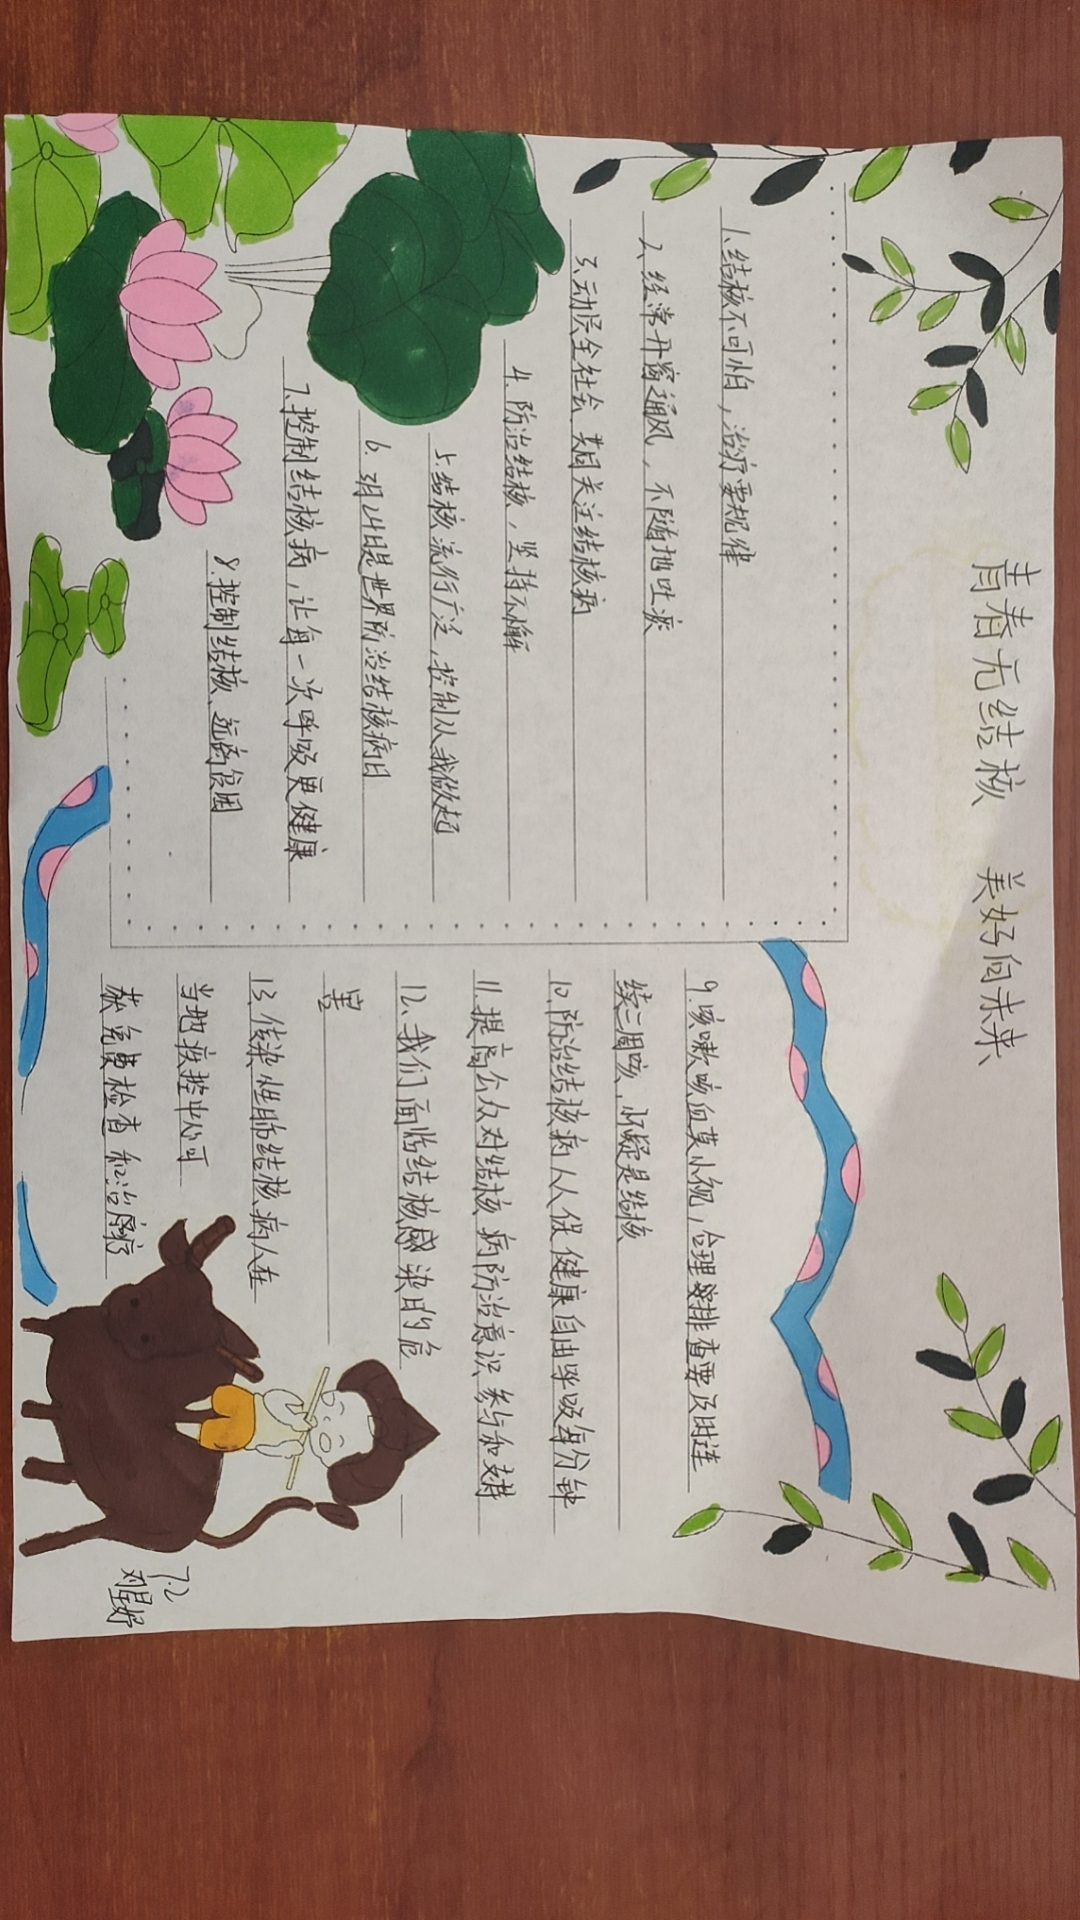 青春无结核 美好向未来
1.结核不可怕，治疗要规律
2.经常开窗通风，不随地吐痰
3.动员全社会共同关注结核病
4.防治结核，坚持不懈
5.结核流行广泛，控制从我做起
6.3月24日是世界防治结核病日
7.控制结核病，让每一次呼吸更健康
8.控制结核、远离贫困
9.咳嗽咳血莫小视，合理排查要及时连
续二周咳，怀疑是结核
10.防治结核病人人保健康自由呼吸每分钟
11.提高公众对结核病防治意识参与和支持
12.我们面临结核感染的危
害
13.传染性肺结核病人在
当地疾控中心可
获免费检查和治疗
7.2